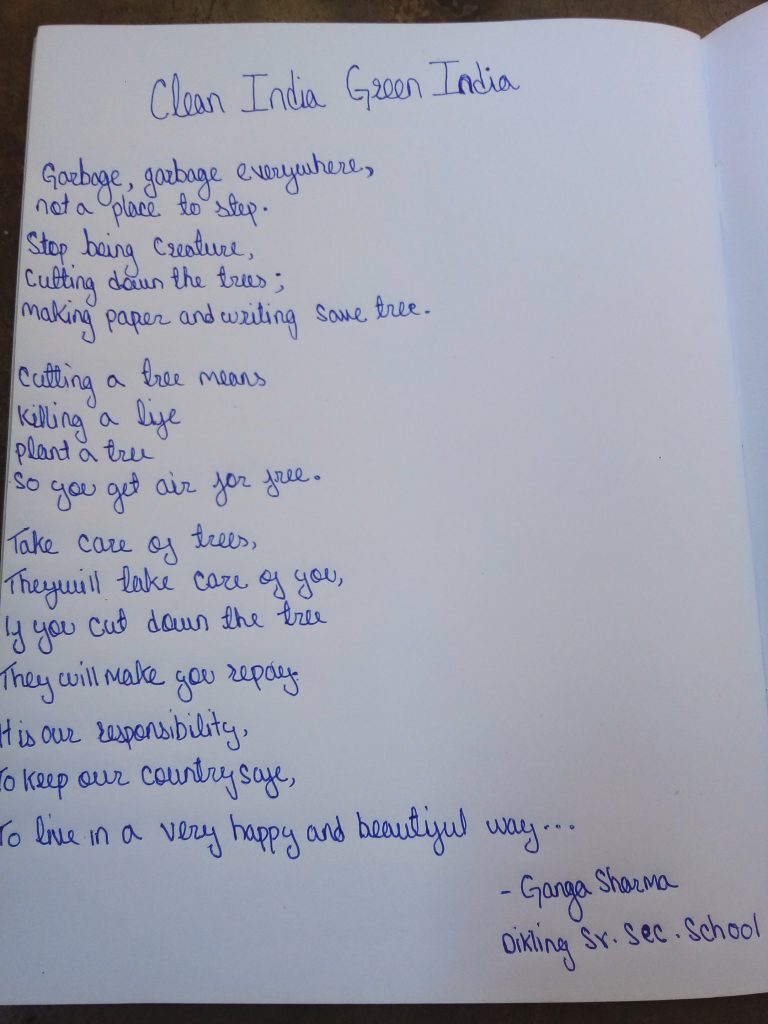 Clean India Green India
Garbage, garbage everywhere,
not a place to step.
Stop being creature,
Cutting down the trees;
making paper and writing save tree.
Cutting a tree means
Killing a life
plant a tree
So you get air for free.
Take care of trees,
They will take care of you,
If you cut down the tree
They will make you repay.
It is our responsibility,
To keep our country safe,
To live in a very happy and beautiful way...
- Ganga Sharma
Dikling Sr. Sec. School